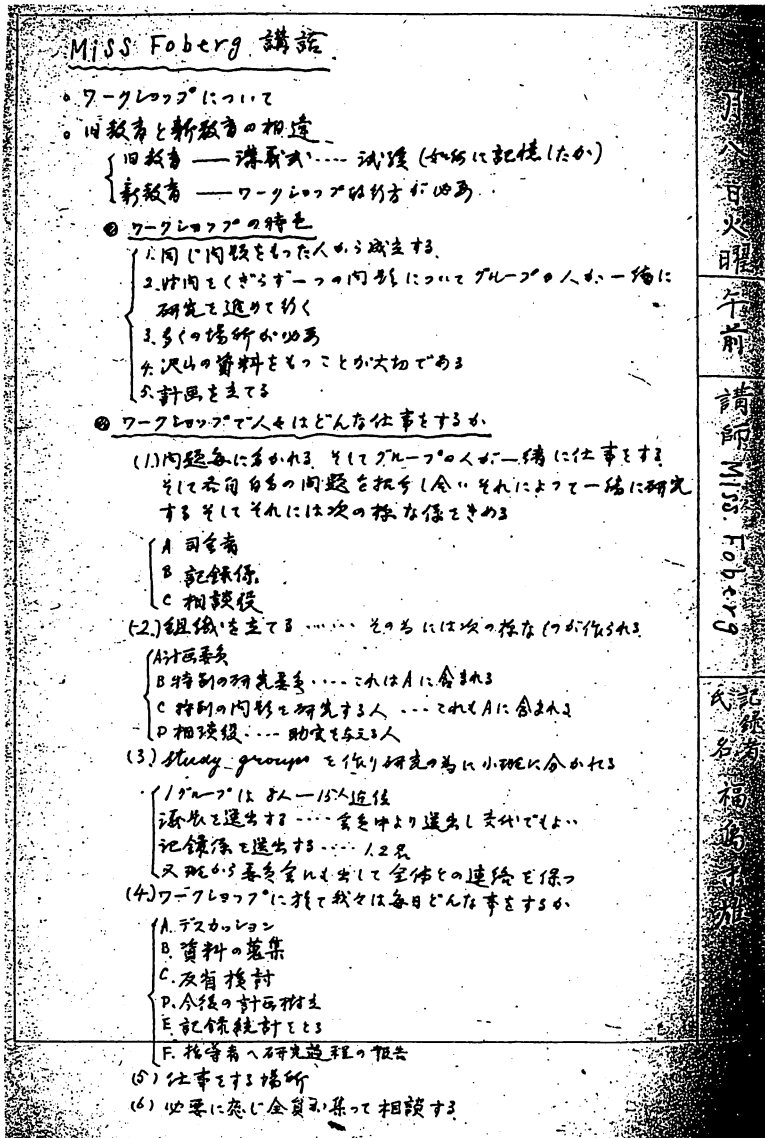 Miss Foberg 講話
○ ワークショップについて
○ 旧教育と新教育の相違
旧教育 ── 講義式 ‥‥ 試験 (如何に記憶したか)
新教育 ── ワークショップ的行方が必要
ワークショップの特色
1. 同じ問題をもった人から成立する
2. 時間をくぎらず一つの問題についてグループの人が一緒に
研究を進めて行く
3. 多くの場所が必要
4. 沢山の資料をもつことが大切である
5. 計画を立てる
ワークショップで人々はどんな仕事をするか
(1.) 問題毎に分かれる そしてグループの人が一緒に仕事をする
そして各自自分の問題を し合い それによって一緒に研究
する そしてそれには次の様な係をきめる
A 司会者
B 記録係
C 相談役
(2.) 組織を立てる ‥‥‥ その為には次の様なものが作られる
A 計画委員
B 特別の研究委員 ‥‥ これはAに含まれる
C 特別の問題を研究する人 ‥‥ これもAに含まれる
D 相談役 ‥‥ 助言を与える人
(3) study groups を作り研究の為に小班に分かれる
1グループは 8人─15人近位
を選出する ‥‥ 会員中より選出し交代でもよい
記録係を選出する ‥‥ 1.2名
又班から委員会にも出して全体との連絡を保つ
(4.) ワークショップに於て我々は毎日どんな事をするか
A. デスカッション
B. 資料の蒐集
C. 反省検討
D. 今後の計画樹立
E. 記録統計をとる
F. 指導者へ研究過程の報告
(5) 仕事をする場所
(6) 必要に応じ全員が集って相談する
月八日火曜
午前
講師 Miss. Foberg
記録者
氏名 福島